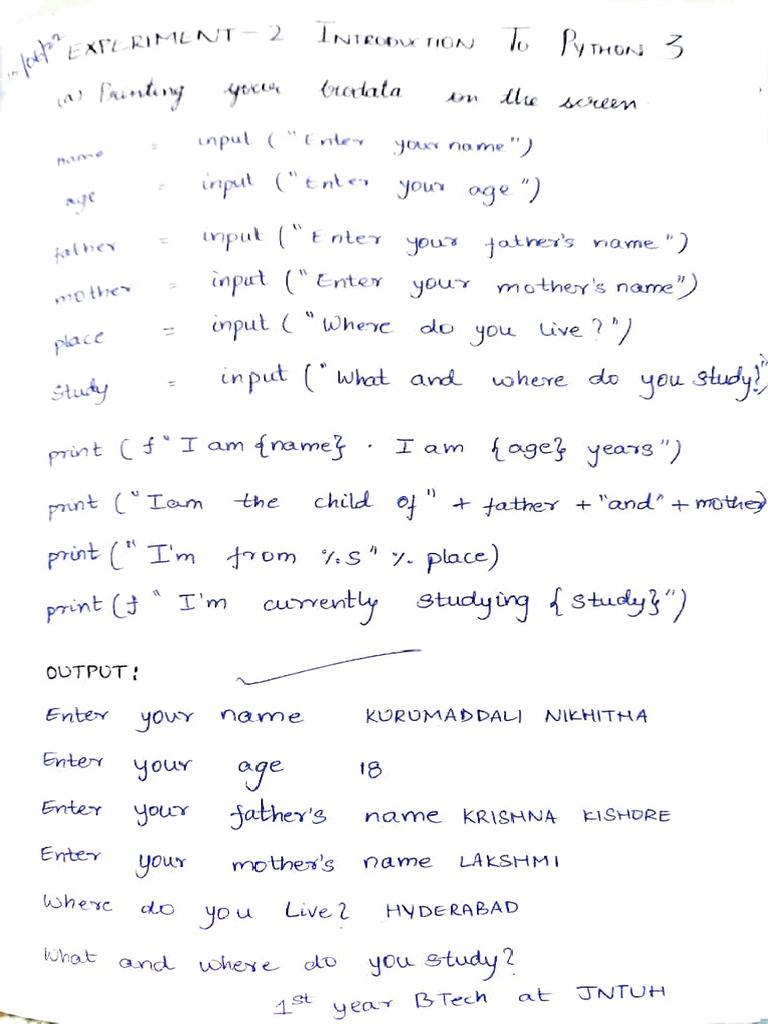 EXPERIMENT-2 INTRODUCTION TO PYTHON 3
(a) Printing your biodata on the screen
name = input ("Enter your name")
age = input ("Enter your age")
father = input ("Enter your father's name")
mother = input ("Enter your mother's name")
place = input ("Where do you live?")
study = input ("What and where do you study?")
print (f"I am {name} . I am {age} years")
print ("I am the child of" + father + "and" + mother)
print ("I'm from %s" % place)
print (f"I'm currently studying {study}")
OUTPUT:
Enter your name KURUMADDALI NIKHITHA
Enter your age 18
Enter your father's name KRISHNA KISHORE
Enter your mother's name LAKSHMI
Where do you Live? HYDERABAD
What and where do you study?
1st year BTech at JNTUH